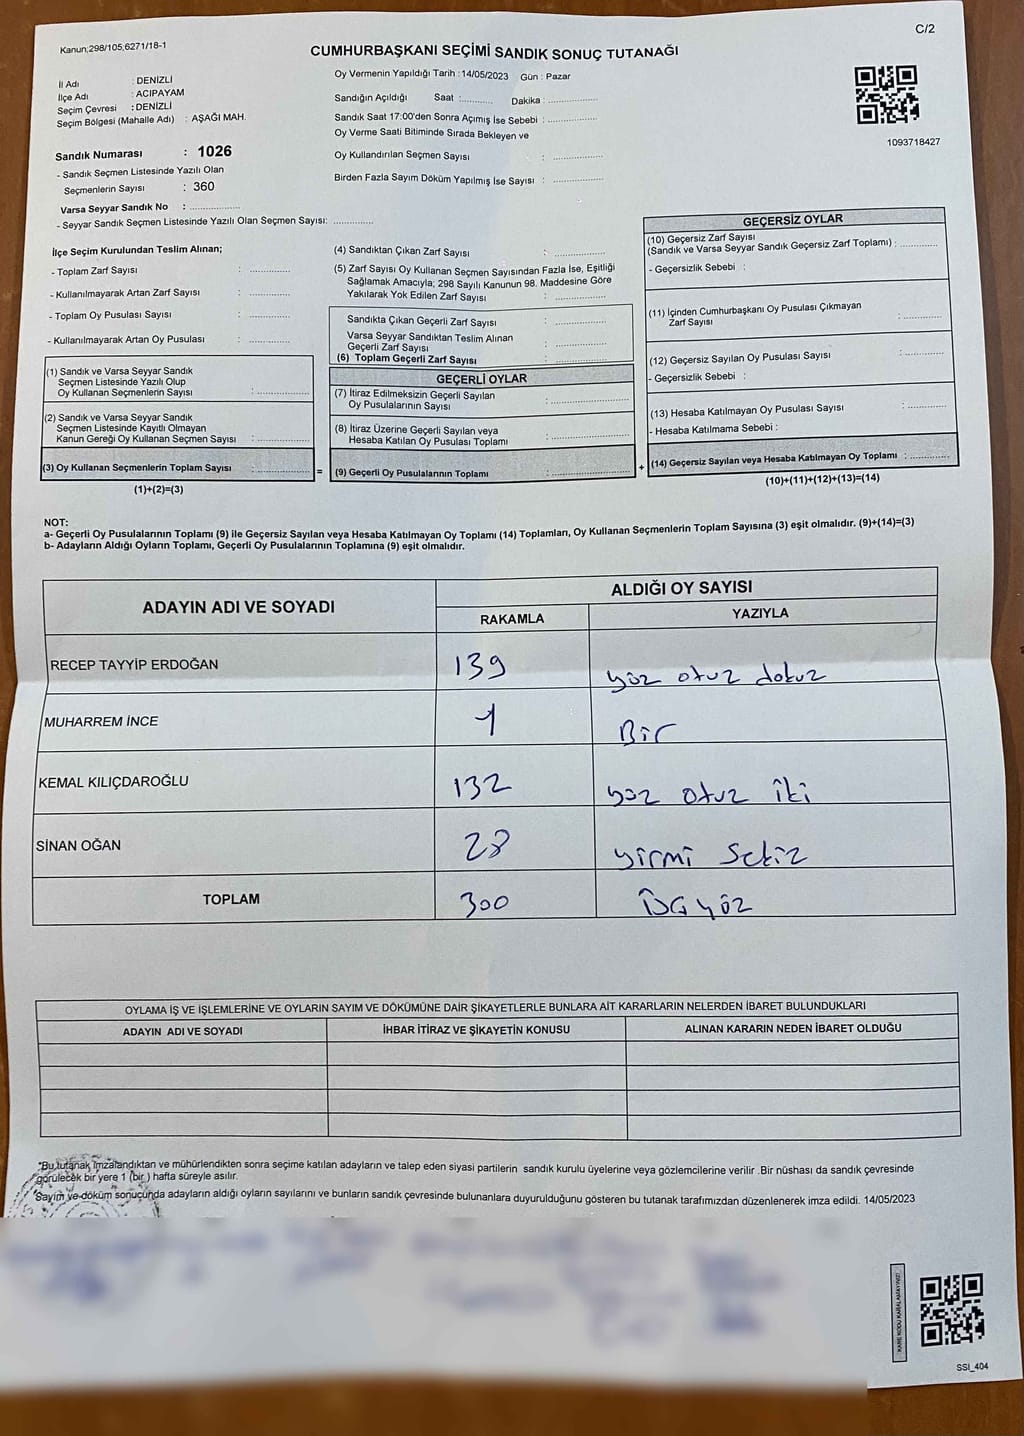 Kanun;298/105,6271/18-1
C/2
CUMHURBAŞKANI SEÇİMİ SANDIK SONUÇ TUTANAĞI
İl Adı : DENİZLİ
İlçe Adı : ACIPAYAM
Seçim Çevresi : DENİZLİ
Seçim Bölgesi (Mahalle Adı) : AŞAĞI MAH.
Sandık Numarası : 1026
- Sandık Seçmen Listesinde Yazılı Olan
Seçmenlerin Sayısı : 360
Varsa Seyyar Sandık No : ..............
- Seyyar Sandık Seçmen Listesinde Yazılı Olan Seçmen Sayısı: ............
Oy Vermenin Yapıldığı Tarih : 14/05/2023 Gün : Pazar
Sandığın Açıldığı Saat :........... Dakika : ...............
Sandık Saat 17:00'den Sonra Açımış İse Sebebi : ...............
Oy Verme Saati Bitiminde Sırada Bekleyen ve
Oy Kullandırılan Seçmen Sayısı : ...............
Birden Fazla Sayım Döküm Yapılmış İse Sayısı : ...............
1093718427
İlçe Seçim Kurulundan Teslim Alınan;
- Toplam Zarf Sayısı : ............
- Kullanılmayarak Artan Zarf Sayısı : ............
- Toplam Oy Pusulası Sayısı : ............
- Kullanılmayarak Artan Oy Pusulası : ............
(1) Sandık ve Varsa Seyyar Sandık
Seçmen Listesinde Yazılı Olup
Oy Kullanan Seçmenlerin Sayısı : ...............
(2) Sandık ve Varsa Seyyar Sandık
Seçmen Listesinde Kayıtlı Olmayan
Kanun Gereği Oy Kullanan Seçmen Sayısı : ...............
(3) Oy Kullanan Seçmenlerin Toplam Sayısı : ...............
(1)+(2)=(3)
=
(4) Sandıktan Çıkan Zarf Sayısı : ...............
(5) Zarf Sayısı Oy Kullanan Seçmen Sayısından Fazla İse, Eşitliği
Sağlamak Amacıyla; 298 Sayılı Kanunun 98. Maddesine Göre
Yakılarak Yok Edilen Zarf Sayısı : ...............
Sandıkta Çıkan Geçerli Zarf Sayısı : ...............
Varsa Seyyar Sandıktan Teslim Alınan
Geçerli Zarf Sayısı : ...............
(6) Toplam Geçerli Zarf Sayısı : ...............
GEÇERLİ OYLAR
(7) İtiraz Edilmeksizin Geçerli Sayılan
Oy Pusulalarının Sayısı : ...............
(8) İtiraz Üzerine Geçerli Sayılan veya
Hesaba Katılan Oy Pusulası Toplamı : ...............
(9) Geçerli Oy Pusulalarının Toplamı : ...............
+
GEÇERSİZ OYLAR
(10) Geçersiz Zarf Sayısı
(Sandık ve Varsa Seyyar Sandık Geçersiz Zarf Toplamı) : ............
- Geçersizlik Sebebi :
(11) İçinden Cumhurbaşkanı Oy Pusulası Çıkmayan
Zarf Sayısı : ............
(12) Geçersiz Sayılan Oy Pusulası Sayısı : ............
- Geçersizlik Sebebi :
(13) Hesaba Katılmayan Oy Pusulası Sayısı : ............
- Hesaba Katılmama Sebebi :
(14) Geçersiz Sayılan veya Hesaba Katılmayan Oy Toplamı : ............
(10)+(11)+(12)+(13)=(14)
NOT:
a- Geçerli Oy Pusulalarının Toplamı (9) ile Geçersiz Sayılan veya Hesaba Katılmayan Oy Toplamı (14) Toplamları, Oy Kullanan Seçmenlerin Toplam Sayısına (3) eşit olmalıdır. (9)+(14)=(3)
b- Adayların Aldığı Oyların Toplamı, Geçerli Oy Pusulalarının Toplamına (9) eşit olmalıdır.
ADAYIN ADI VE SOYADI ALDIĞI OY SAYISI
RAKAMLA YAZIYLA
RECEP TAYYİP ERDOĞAN 139 yüz otuz dokuz
MUHARREM İNCE 1 Bir
KEMAL KILIÇDAROĞLU 132 yüz otuz iki
SİNAN OĞAN 28 yirmi sekiz
TOPLAM 300 Üçyüz
OYLAMA İŞ VE İŞLEMLERİNE VE OYLARIN SAYIM VE DÖKÜMÜNE DAİR ŞİKAYETLERLE BUNLARA AİT KARARLARIN NELERDEN İBARET BULUNDUKLARI
ADAYIN ADI VE SOYADI İHBAR İTİRAZ VE ŞİKAYETİN KONUSU ALINAN KARARIN NEDEN İBARET OLDUĞU
*Bu tutanak imzalandıktan ve mühürlendikten sonra seçime katılan adayların ve talep eden siyasi partilerin sandık kurulu üyelerine veya gözlemcilerine verilir .Bir nüshası da sandık çevresinde
görülecek bir yere 1 (bir ) hafta süreyle asılır.
*Sayım ve döküm sonucunda adayların aldığı oyların sayılarını ve bunların sandık çevresinde bulunanlara duyurulduğunu gösteren bu tutanak tarafımızdan düzenlenerek imza edildi. 14/05/2023
KARE KODU KARALAMAYINIZ!
SSI_404